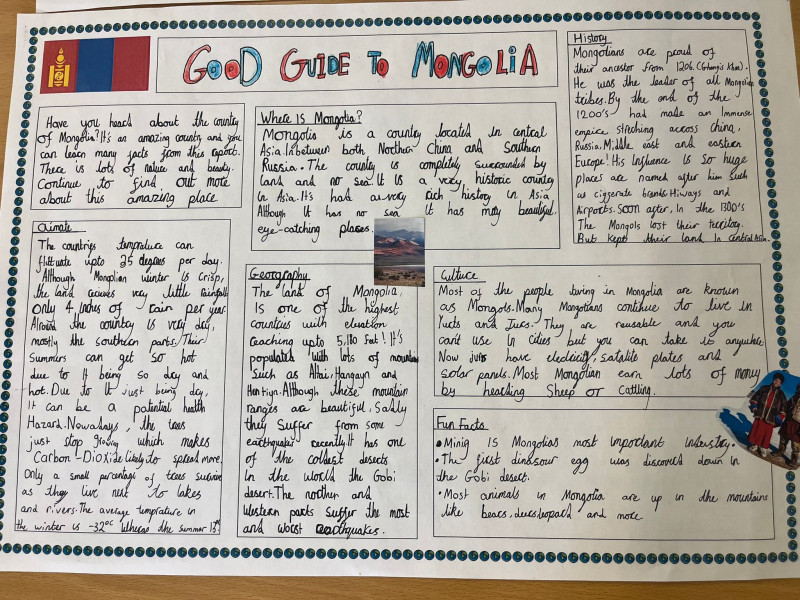 GOOD GUIDE TO MONGOLIA
Have you heach about the country
of Mongolia? It's an amazing country and you
can learn many facts from this report.
There is lots of nature and beauty.
Continue to find out more
about this amazing place
Where Is Mongolia?
Mongolia is a country located in central
Asia. Inbetween both Northern China and Southern
Russia. The country is completely surrounded by
land and no sea. It is a very historic country
in Asia. It's had a very rich history in Asia
Although it has no sea it has many beautiful,
eye-catching places.
History
Mongolians are proud of
their ancestor from 1206. (Ghengis Khan).
He was the leader of all Mongolian
tribes. By the end of the
1200's had made an immense
empire streching across China,
Russia, Middle east and eastern
Europe! His Influence is so huge
places are named after him such
as ciggerate brands, Hiways and
Airports. Soon after, In the 1300's
The Mongols lost their territory.
But kept their land in central Asia.
Climate
The countries temprature can
upto 25 degrees per day.
Although Mongolian winter is Crisp,
the land receives very little rainfall.
Only 4 inches of rain per year.
the country is very dry,
mostly the southern parts. Their
Summers can get so hot
due to it being so dry and
hot. Due to it just being dry,
it can be a potential health
Hazard. Nowadays, the trees
just stop growing which makes
Carbon-Dioxide likely to spread more.
Only a small percentage of trees survive
as they live next to lakes
and rivers. The average temprature in
the winter is -32°C Wheras the summer
Geography
The land of Mongolia,
is one of the highest
countries with elevation
reaching upto 5,180 feet! It's
populated with lots of mountains
such as Altai, Hangayn and
Hentiyn. Although these mountain
ranges are beautiful, Sadly
they suffer from some
earthquakes recently. It has one
of the coldest deserts
in the world the Gobi
desert. The norther and
Western parts suffer the most
and worst earthquakes.
Culture
Most of the people living in Mongolia are known
as Mongols. Many Mongolians continue to live in
Yurts and They are reusable and you
can't use in cities but you can take it anywhere
Now have electricity, satalite plates and
solar panels. Most Mongolian earn lots of money
by heaching Sheep or Cattling.
Fun Facts
• Minig is Mongolias most important industry.
• The first dinasour egg was discoverd down in
the Gobi desert.
• Most animals in Mongolia are up in the mountains
like bears, deer, leopard and more